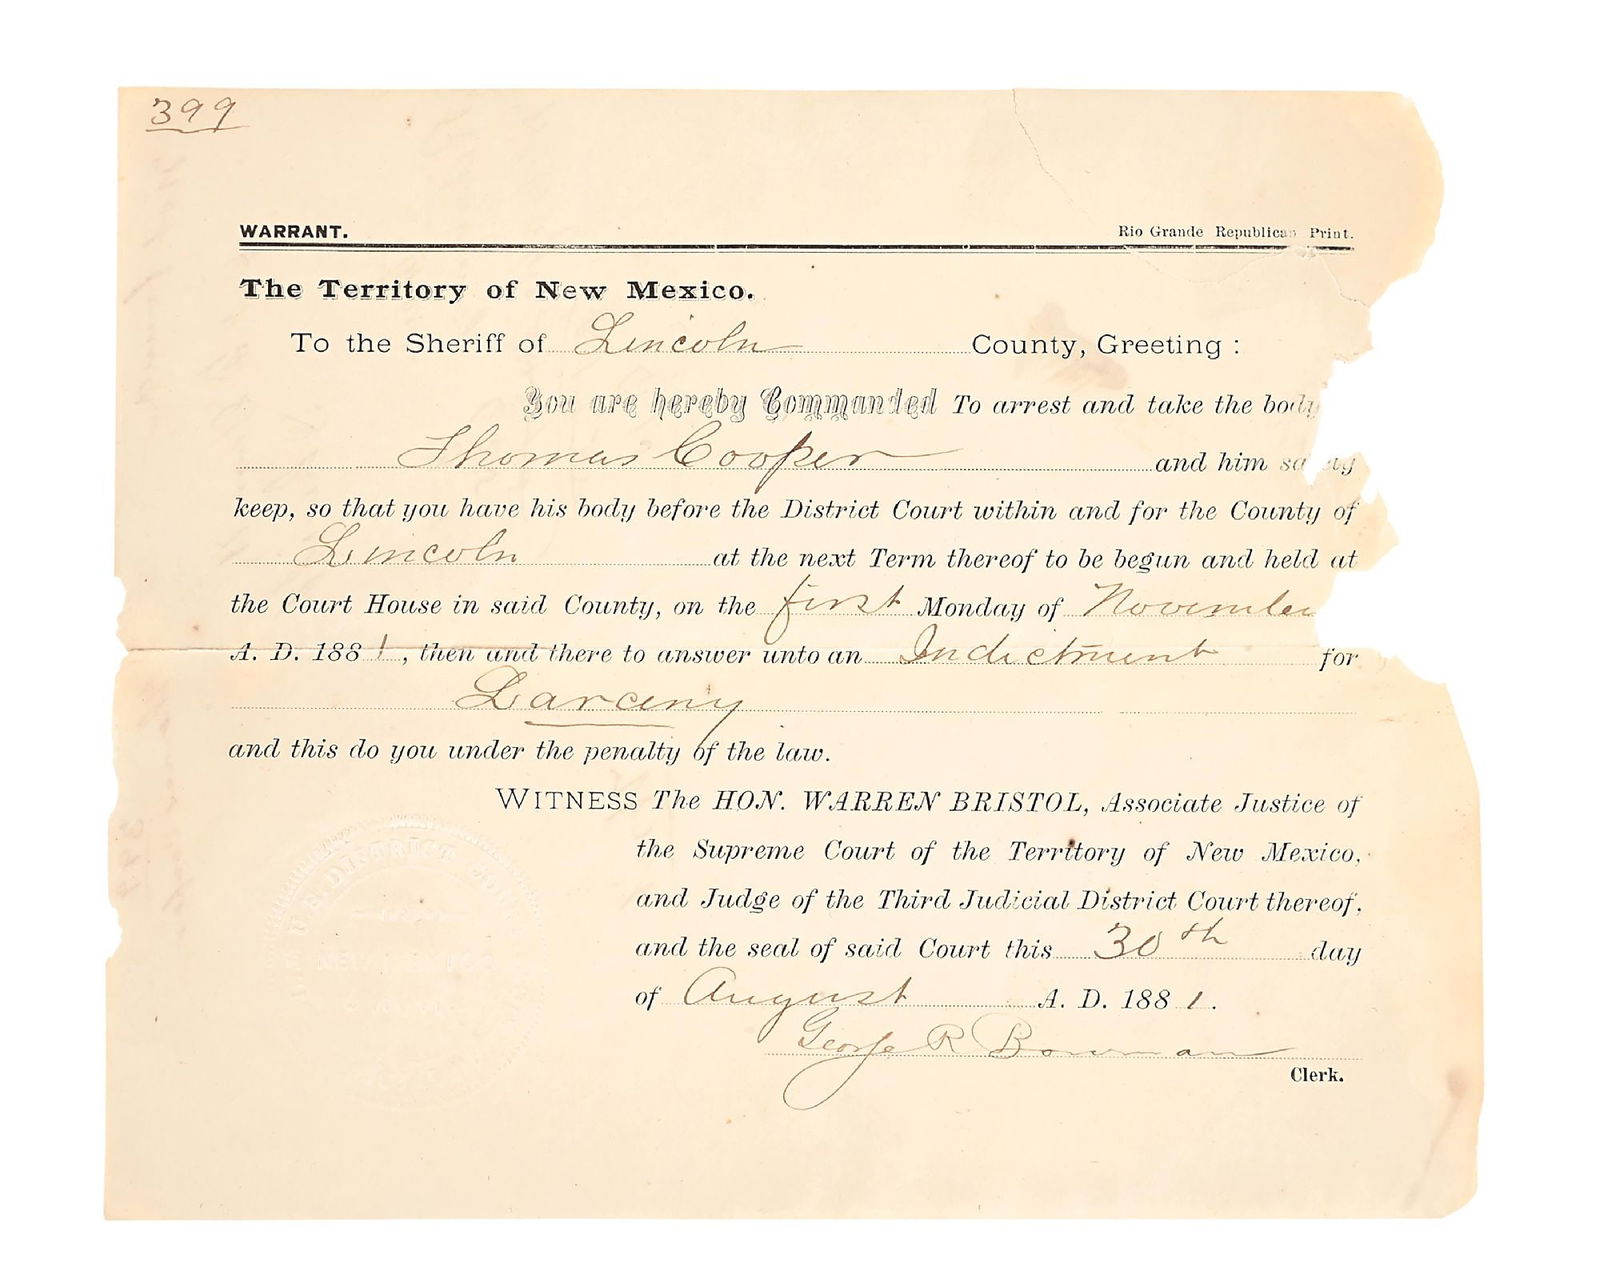 399
WARRANT. Rio Grande Republican Print.
The Territory of New Mexico.
To the Sheriff of Lincoln County, Greeting :
You are hereby Commanded To arrest and take the body
Thomas Cooper and him
keep, so that you have his body before the District Court within and for the County of
Lincoln at the next Term thereof to be begun and held at
the Court House in said County, on the first Monday of November
A. D. 1881, then and there to answer unto an Indictment for
Larceny
and this do you under the penalty of the law.
WITNESS The HON. WARREN BRISTOL, Associate Justice of
the Supreme Court of the Territory of New Mexico,
and Judge of the Third Judicial District Court thereof,
and the seal of said Court this 30th day
of August A. D. 1881.
George R Bowman
Clerk.
DISTRICT